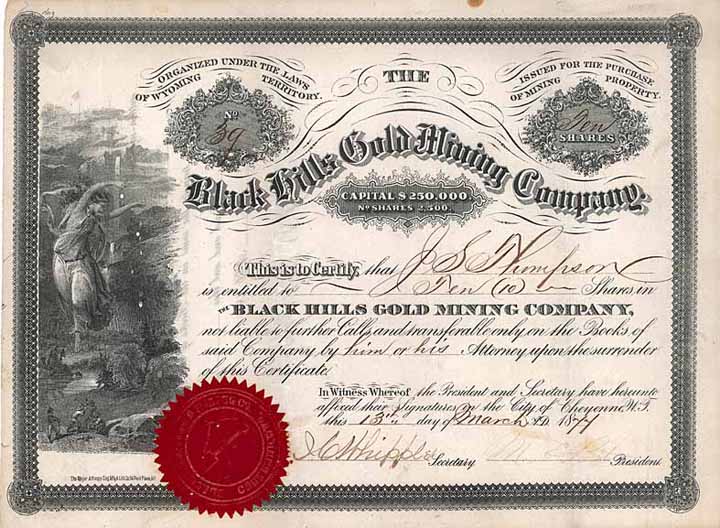 ORGANIZED UNDER THE LAWS
OF WYOMING TERRITORY.
THE
ISSUED FOR THE PURCHASE
OF MINING PROPERTY.
No
39
Ten
SHARES
Black Hills Gold Mining Company
CAPITAL $250,000
No SHARES 2,500.
This is to Certify, that J S Thompson
is entitled to Ten (10) Shares in
THE BLACK HILLS GOLD MINING COMPANY,
not liable to further Calls, and transferable only on the Books of
said Company by him or his Attorney upon the surrender
of this Certificate.
In Witness Whereof the President and Secretary have hereunto
affixed their signatures in the City of Cheyenne, W.T.
this 13th day of March A.D. 1877
Whipple Secretary President